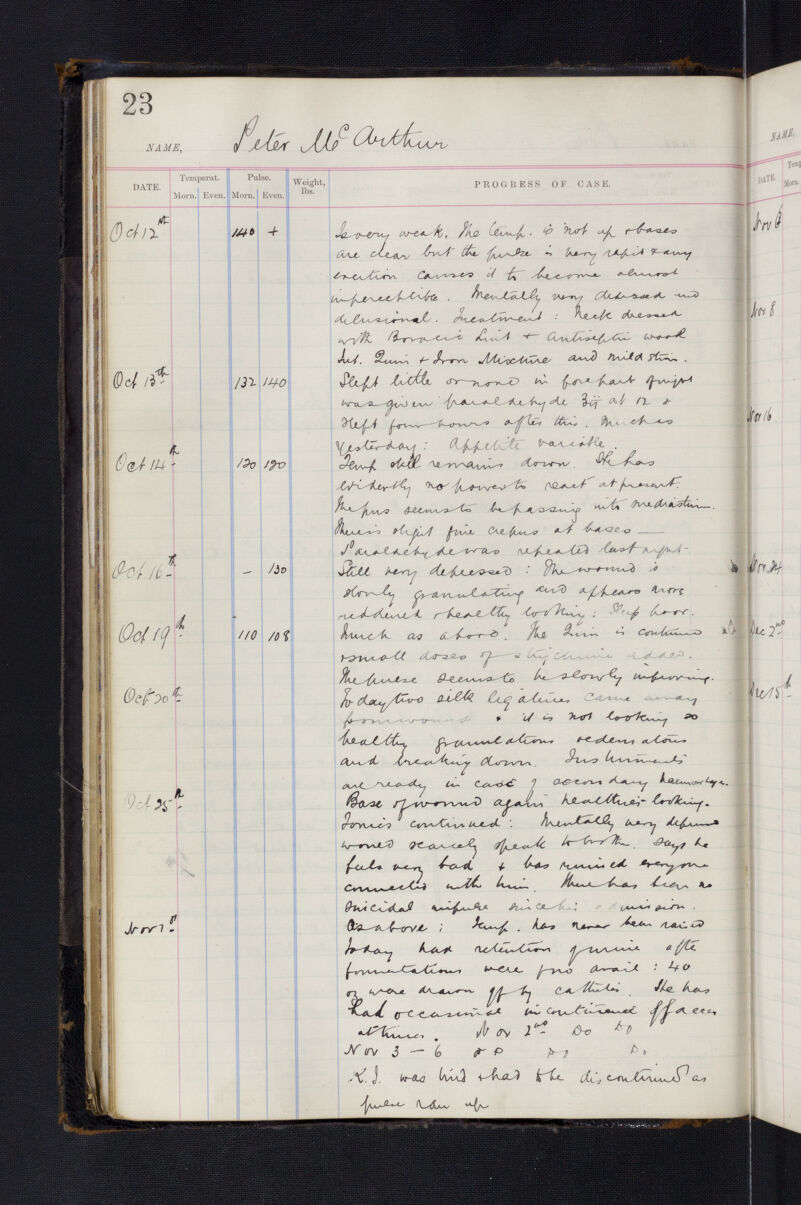 23
NAME, Peter McArthur
DATE. Temperat. Pulse. Weight, lbs. PROGRESS OF CASE.
Morn. Even. Morn. Even.
Oct 12th 140 + Is very weak. The temp. is not up & bases
are clear but the pulse is very rapid & any
exertion causes it to become almost
imperceptible. Mentally very depressed and
delusional. Treatment: Neck dressed
with Boracic Lint & Antiseptic wool
Int. Quin & Iron Mixture and mild stim.
Oct 13th 132 140 Slept little or none in forepart of night
was given paraldehyde ʒii at 12 &
slept four hours after this. Much as
Yesterday: Appetite variable.
Oct 14th 120 120 Temp still remains down. He has
evidently no power to react at present.
The pus seems to be passing into mediastinum.
There is slight fine crepus at bases —
Paraldehyde was repeated last night.
Oct 16th – 130 Still very depressed: The wound is
slowly granulating and appears more
reddened & healthy looking: Sleep poor.
Oct 19th 110 108 Much as above. The Quin is continued
& small doses of strychnine added.
The pulse seems to be slowly improving.
Oct 20th Today two silk ligatures came away
from wound & it is not looking so
healthy granulations oedematous
and breaking down. Instruments
are ready in case of secondary haemorrhage.
Oct 25th Base of wound again healthier looking.
Tonics continued: Mentally very depressed
would scarcely speak to brother. Says he
feels very bad & has ruined everyone
connected with him. There has been no
suicidal impulse since his admission.
Nov 1st As above: Temp. has never been raised
Today had retention of urine after
fomentations were of no avail: 40
oz were drawn off by catheter. He has
had occasional incontinence of faeces
at times. Nov 2nd Do Do
Nov 3 – 6 Do Do Do
K.I. was tried & had to be discontinued as
pulse ran up
NAME,
DATE. Temp
Morn.
Nov 6
Nov 8
Nov 16
Nov 24
Dec 2nd
Dec 15th